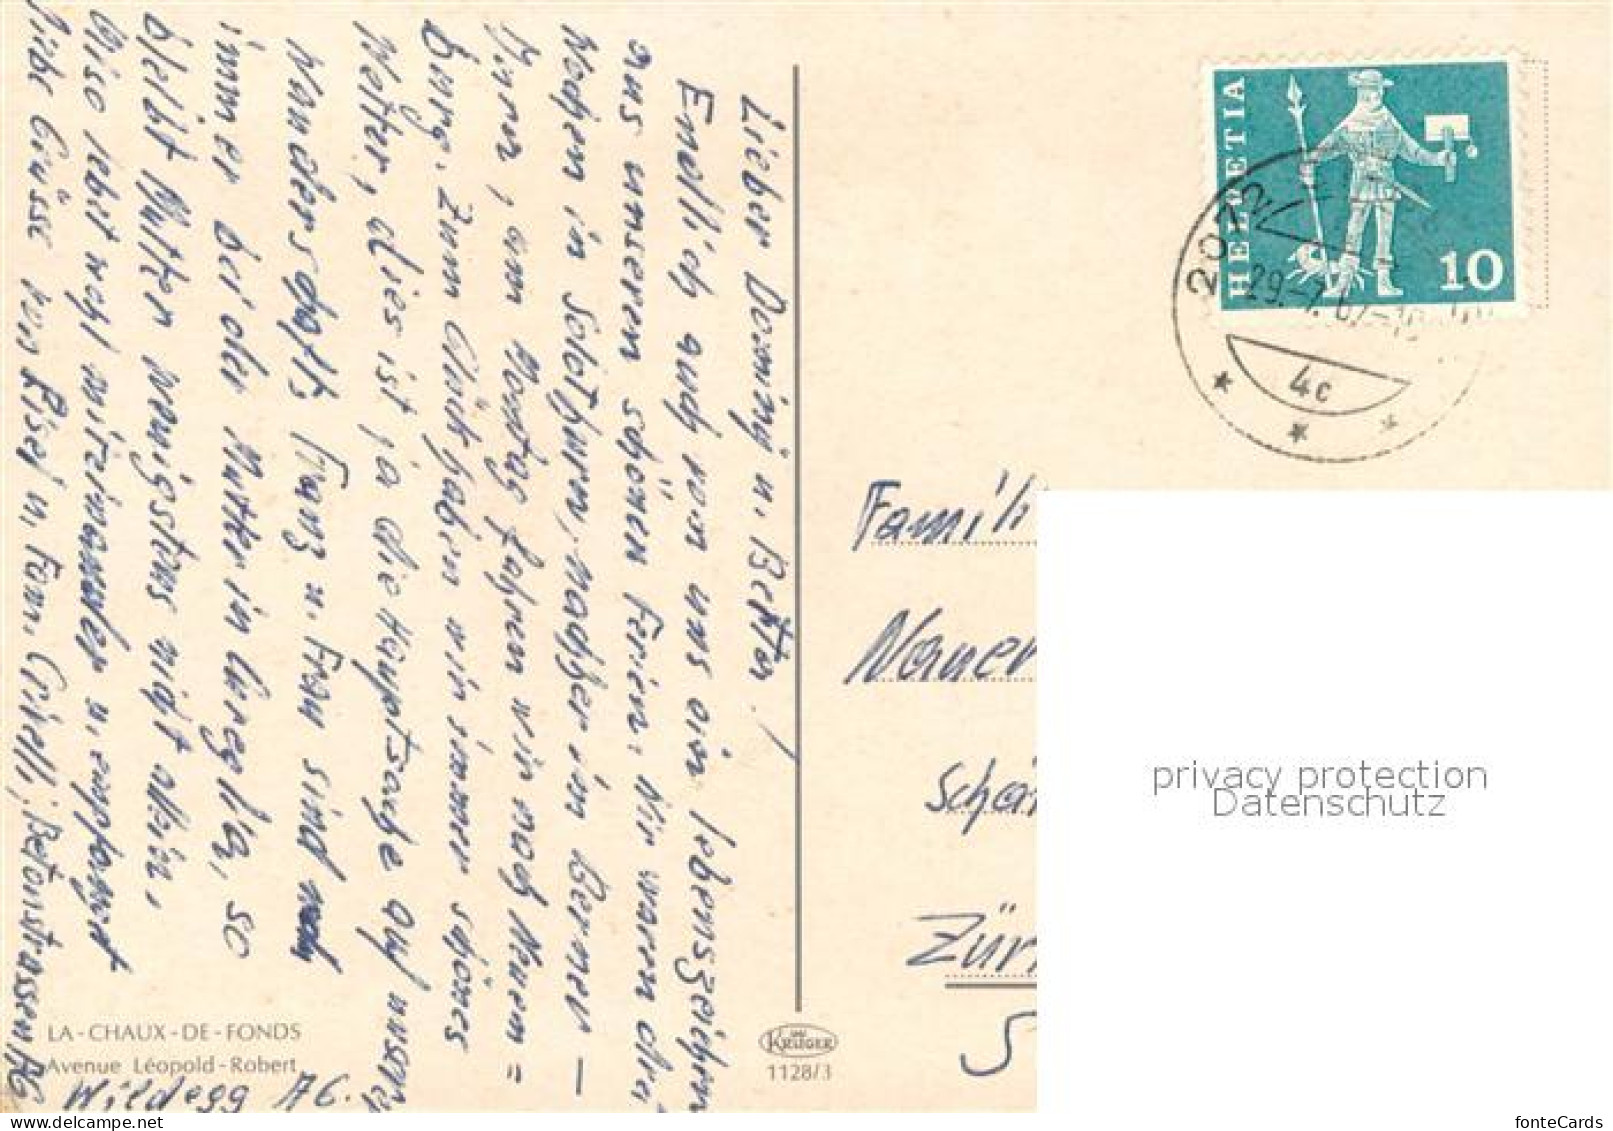 Lieber Dominy u. Betty!
Endlich auch von uns ein Lebenszeichen
aus unseren schönen Ferien. Wir waren drei
Wochen in Solothurn, nachher im Berner-
Jura, am Montag fahren wir nach Neuen=
burg. Zum Glück haben wir immer schönes
Wetter, dies ist ja die Hauptsache auf unseren
Wanderschafts. Franz u. Frau sind auch
immer bei der Mutter in Breglia, so
bleibt Mutter wenigstens nicht allein.
Also lebet wohl miteinander u. empfanget
liebe Grüsse von Lisel u. Fam. Crivelli, Betonstrasse 176
Wildegg AG.
LA-CHAUX-DE-FONDS
Avenue Léopold-Robert
KRÜGER
1128/3
HELVETIA
10
2072
29.-7.67-10
4c
Famili
Schär
Zür
privacy protection
Datenschutz
fonteCards